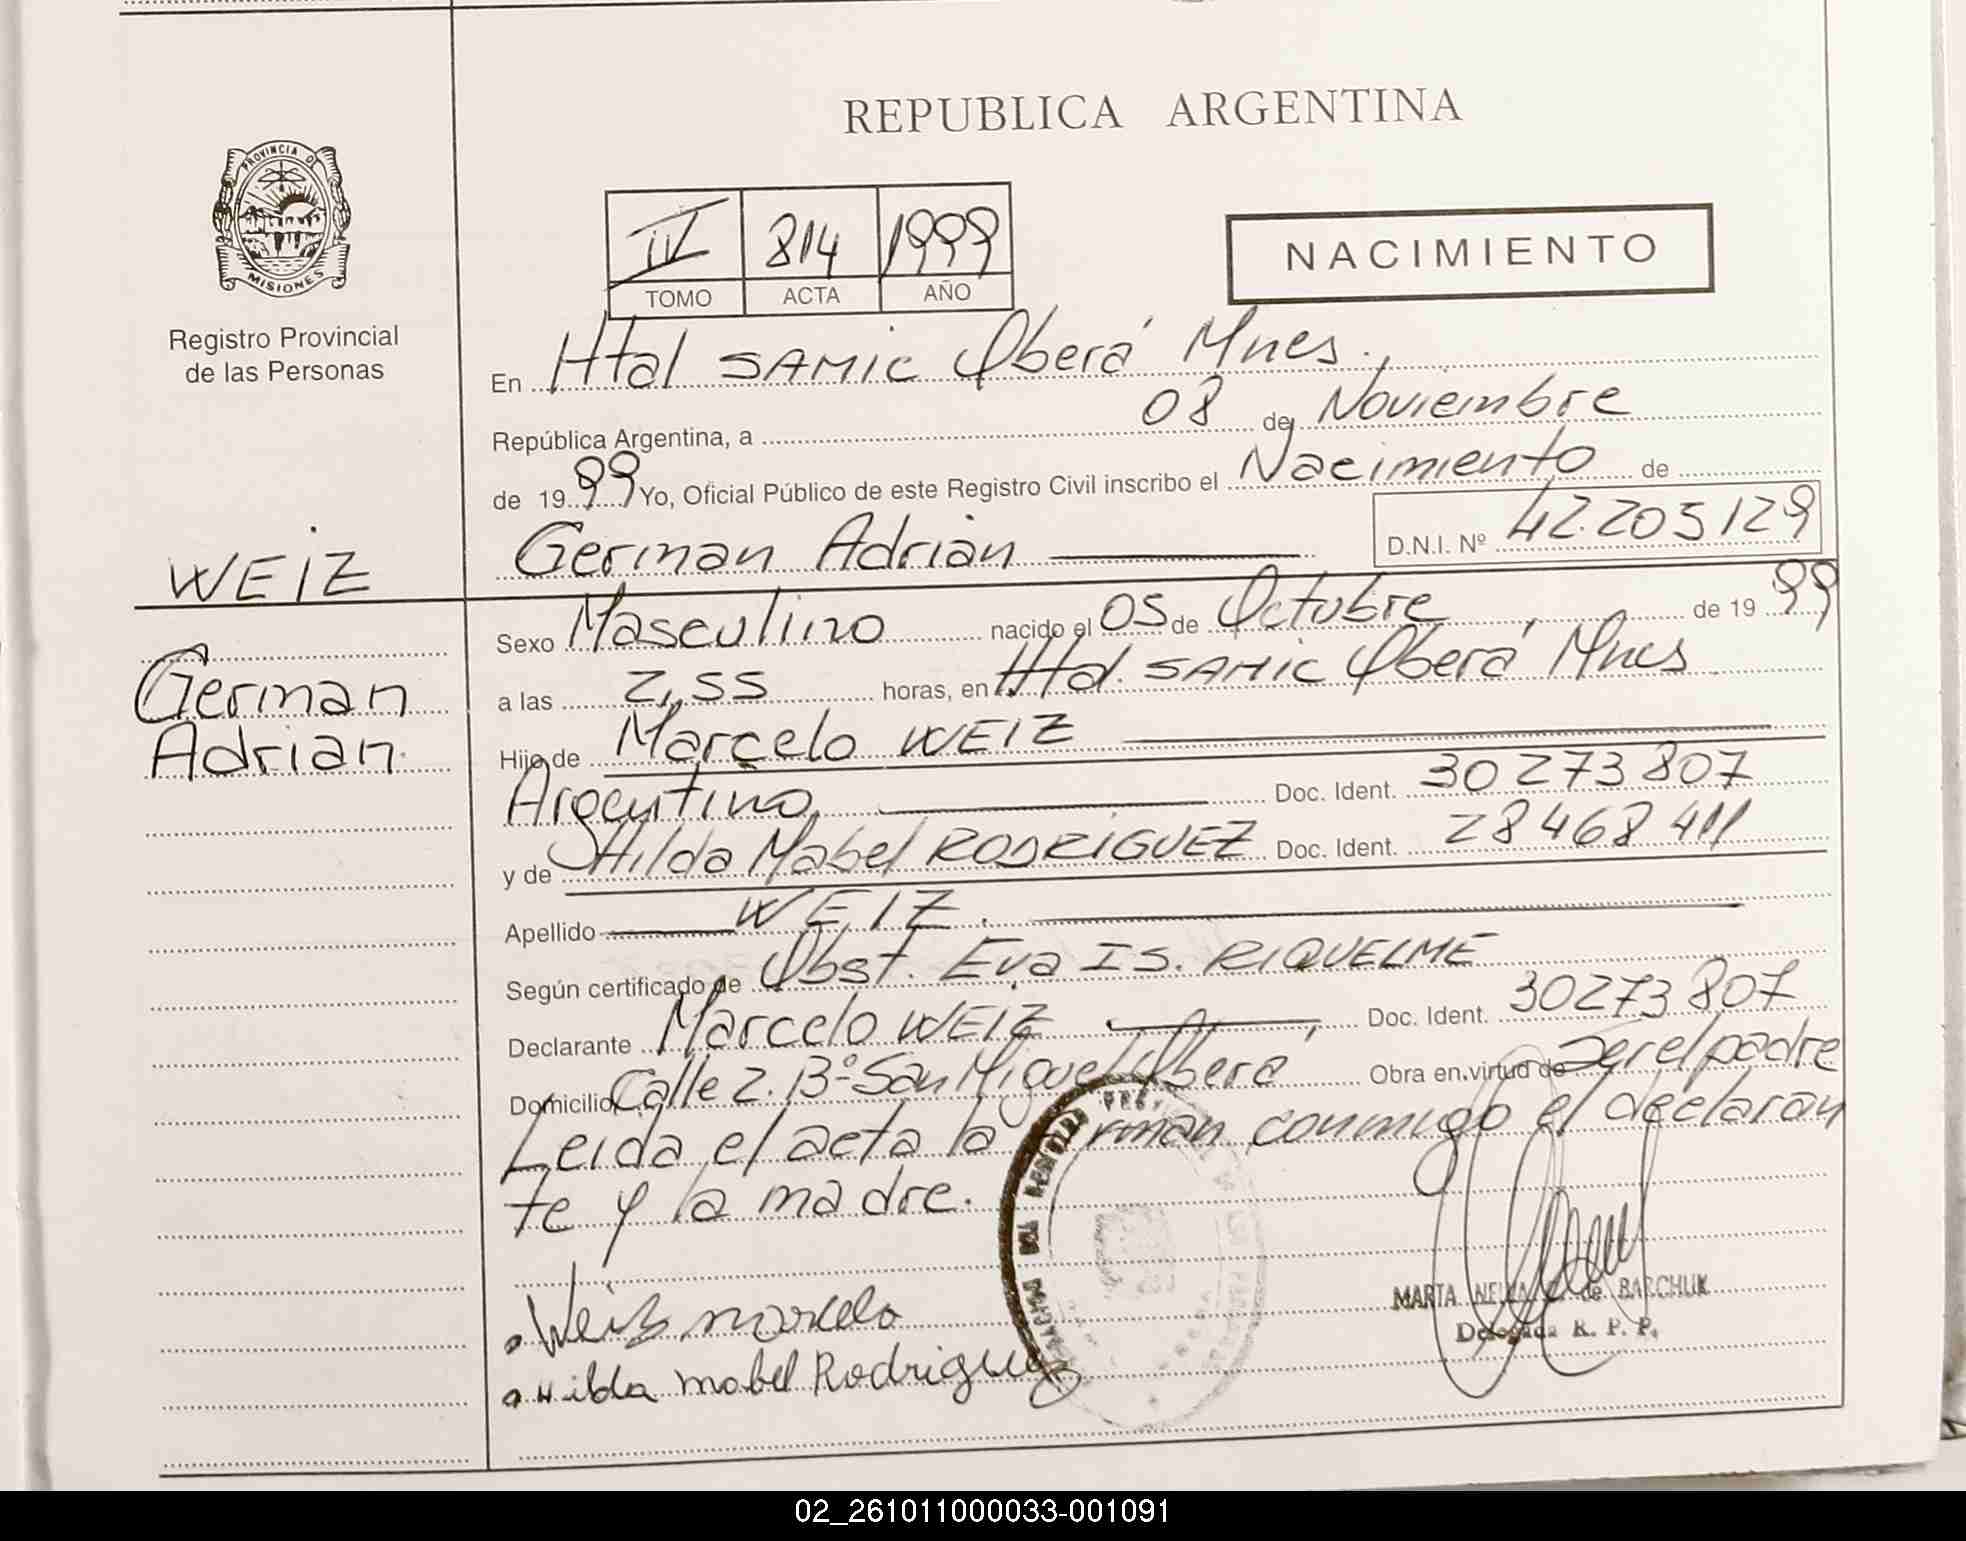 REPUBLICA ARGENTINA
PROVINCIA DE
MISIONES
Registro Provincial
de las Personas
WEIZ
German
Adrian.
III 814 1999
TOMO ACTA AÑO
NACIMIENTO
En Htal SAMIC Oberá Mnes.
República Argentina, a 08 de Noviembre
de 1999 Yo, Oficial Público de este Registro Civil inscribo el Nacimiento de
German Adrian D.N.I. Nº 42.205129
Sexo Masculino nacido el 05 de Octubre de 1999
a las 2,55 horas, en Htal. SAMIC Oberá Mnes
Hijo de Marcelo WEIZ
Argentino, Doc. Ident. 30273807
y de Hilda Mabel RODRIGUEZ Doc. Ident. 28468411
Apellido WEIZ.
Según certificado de Obst. Eva IS. RIQUELME
Declarante Marcelo WEIZ, Doc. Ident. 30273807
Domicilio Calle 2. Bº San Miguel Oberá Obra en virtud de Ser el padre
Leida el acta la firman conmigo el declaran
te y la madre.
Weiz marcelo
Hilda mabel Rodriguez
MARTA de BARCHUK
Delegada R. P. P.
02_261011000033-001091